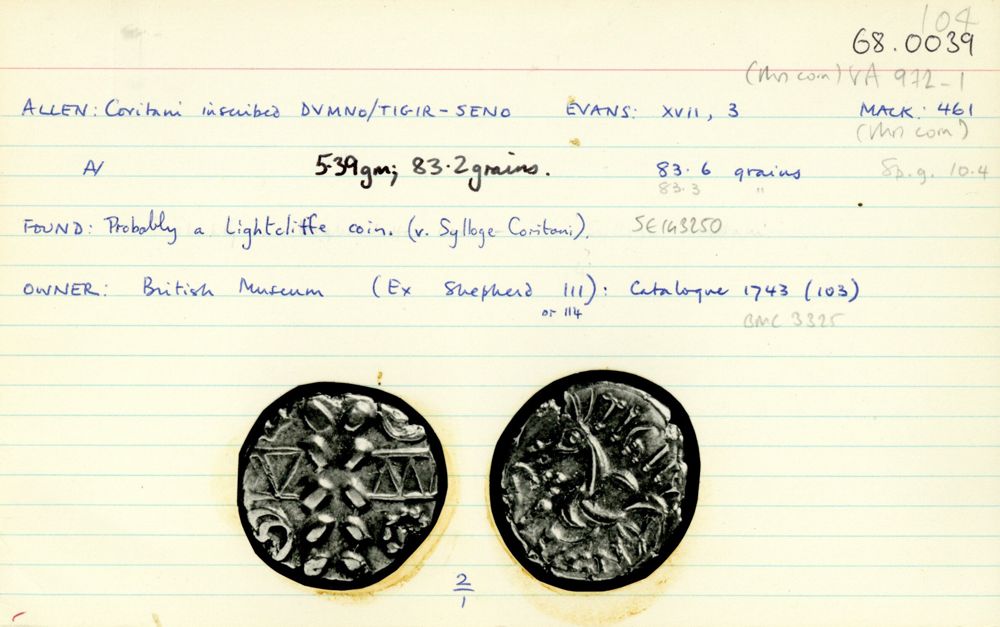 104
68.0039
(this coin) VA 972-1
ALLEN: Coritani inscribed DVMNO/TIGIR-SENO EVANS: XVII, 3 MACK: 461
(this coin)
5.39gm; 83.2grains. 83.6 grains Sp.g. 10.4
83.3 "
FOUND: Probably a Lightcliffe coin. (v. Sylloge Coritani). SE143250
OWNER: British Museum (Ex Shepherd 111): Catalogue 1743 (103)
or 114
BMC 3325
2
1